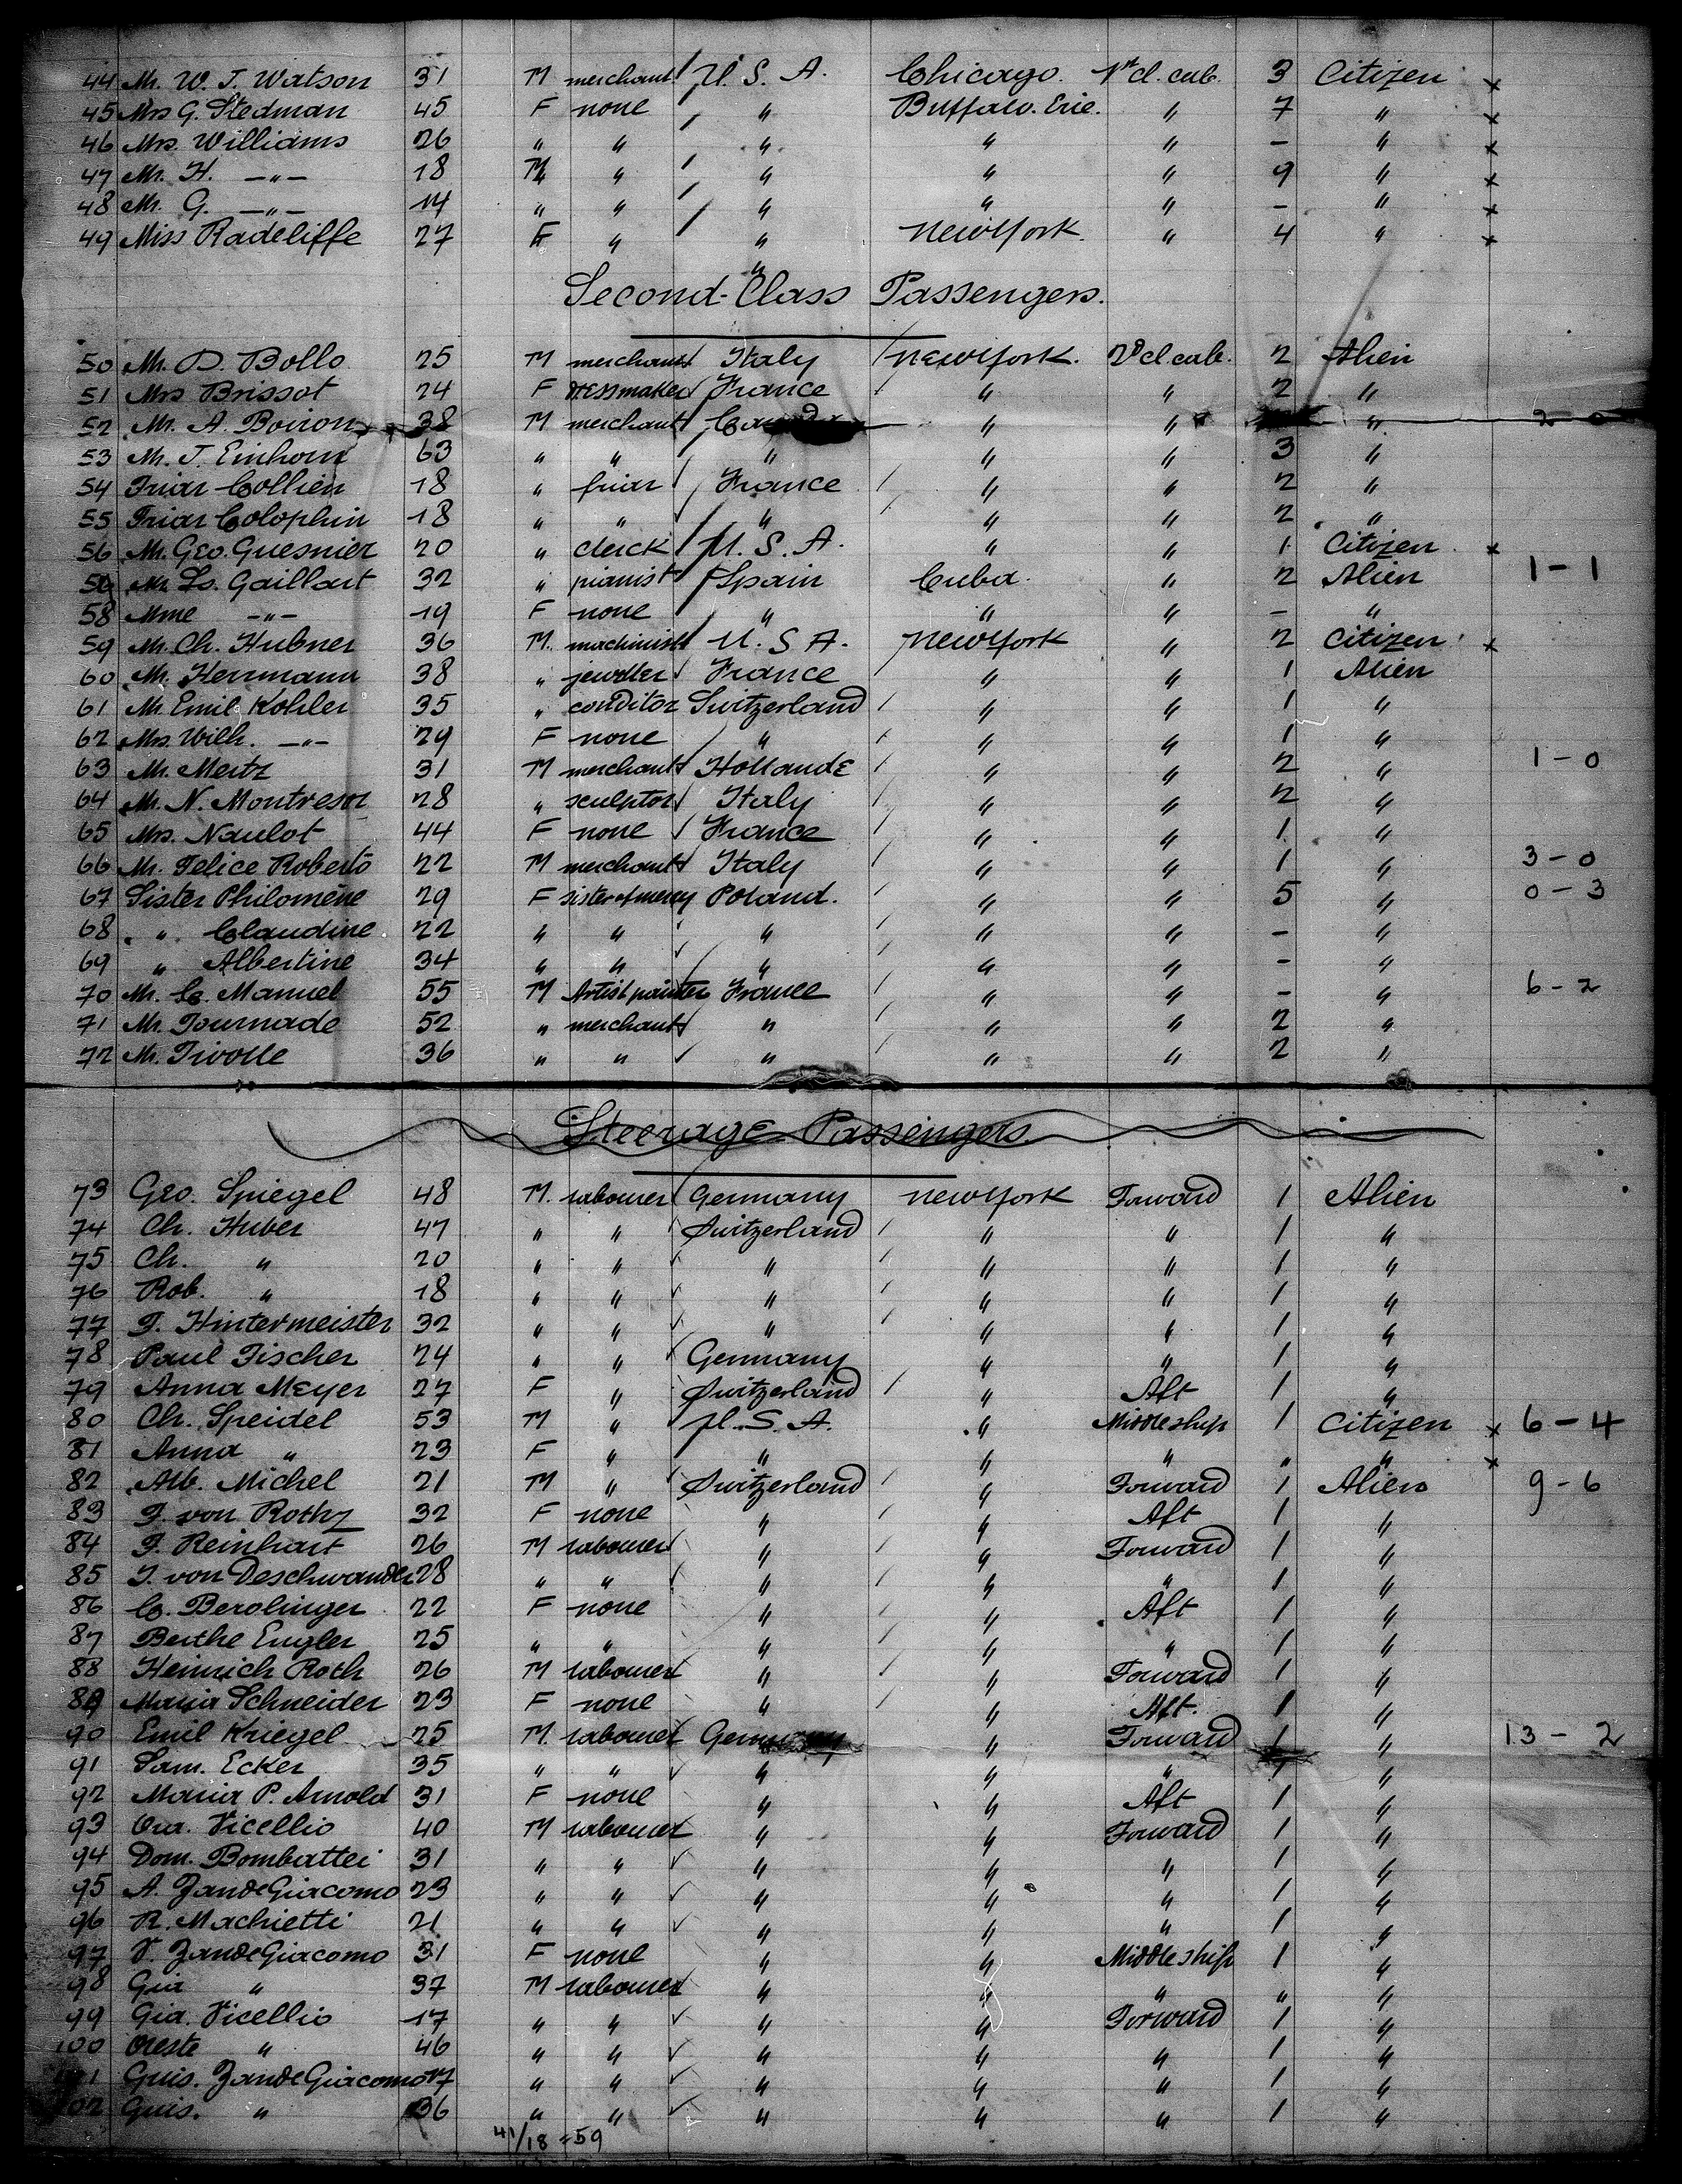 44 Mr. W. J. Watson 31 M merchant U. S. A. Chicago. 1st cl. cab. 3 Citizen x
45 Mrs G. Stedman 45 F none " Buffalo. Erie. " 7 " x
46 Mrs. Williams 26 " " " " " - " x
47 Mr. H. -"- 18 M " " " " 9 " x
48 Mr. G. -"- 14 " " " " " - " x
49 Miss Radcliffe 27 F " " New York. " 4 " x
"
Second-Class Passengers.
50 Mr. D. Bollo 25 M merchant Italy New York. 2d cl cab. 2 Alien
51 Mrs Brissot 24 F dressmaker France " " 2 "
52 Mr. A. Boiron 38 M merchant " " " 2-0
53 Mr. J. Einhorn 63 " " " " " 3 "
54 Friar Collien 18 " friar France " " 2 "
55 Friar Colophin 18 " " " " " 2 "
56 Mr. Geo. Guesnier 20 " clerck U. S. A. " " 1 Citizen x
Mr. Ls. Gaillart 32 " pianist Spain Cuba. " 2 Alien 1-1
58 Mme -"- 19 F none " " " - "
59 Mr. Ch. Hubner 36 M. machinist U. S A. New York " 2 Citizen x
60 Mr. Herrmann 38 " jeweller France " " 1 Alien
61 Mr. Emil Kohler 35 " conditor Switzerland " " 1 "
62 Mrs. Wilh. -"- 29 F none " " " 1 "
63 Mr. Mertz 31 M merchant Hollande " " 2 " 1-0
64 Mr. N. Montresor 28 " sculptor Italy " " 2 "
65 Mrs. Naulot 44 F none France " " 1 "
66 Mr. Felice Roberto 22 M merchant Italy " " 1 " 3-0
67 Sister Philomène 29 F sister of mercy Poland. " " 5 " 0-3
68 " Claudine 22 " " " " " - "
69 " Albertine 34 " " " " " - "
70 Mr. C. Manuel 55 M Artist painter France " " - " 6-2
71 Mr. Tournade 52 " merchant " " " 2 "
72 Mr. Tivolle 36 " " " " " 2 "
Steerage Passengers.
73 Geo. Spiegel 48 M. labourer Germany New York Forward 1 Alien
74 Ch. Huber 47 " " Switzerland " " 1 "
75 Ch. " 20 " " " " " 1 "
76 Rob. " 18 " " " " " 1 "
77 F. Hintermeister 32 " " " " " 1 "
78 Paul Fischer 24 " " Germany " " 1 "
79 Anna Meyer 27 F " Switzerland " Aft 1 "
80 Ch. Speidel 53 M " U. S. A. " Middleship 1 Citizen x 6-4
81 Anna " 23 F " " " " " " x
82 Alb. Michel 21 M " Switzerland " Forward 1 Alien 9-6
83 F. von Rothz 32 F none " " Aft 1 "
84 F. Reinhart 26 M labourer " " Forward 1 "
85 J. von Deschwanden 28 " " " " " 1 "
86 C. Berolinger 22 F none " " Aft 1 "
87 Berthe Engler 25 " " " " " 1 "
88 Heinrich Roth 26 M labourer " " Forward 1 "
89 Maria Schneider 23 F none " " Aft. 1 "
90 Emil Kriegel 25 M. labourer Germany " Forward 1 " 13-2
91 Sam. Ecker 35 " " " " " 1 "
92 Maria P. Arnold 31 F none " " Aft 1 "
93 Vicellio 40 M labourer " " Forward 1 "
94 Dom. Bombattei 31 " " " " " 1 "
95 A. ZandeGiacomo 23 " " " " " 1 "
96 R. Machietti 21 " " " " " 1 "
97 V. ZandeGiacomo 31 F none " " Middleship 1 "
98 Gia " 37 M labourer " " " " "
99 Gia. Vicellio 17 " " " " Forward 1 "
100 Oreste " 46 " " " " " 1 "
101 Guis. ZandeGiacomo 17 " " " " " 1 "
102 Guis. " 36 " " " " " 1 "
41/18 = 59